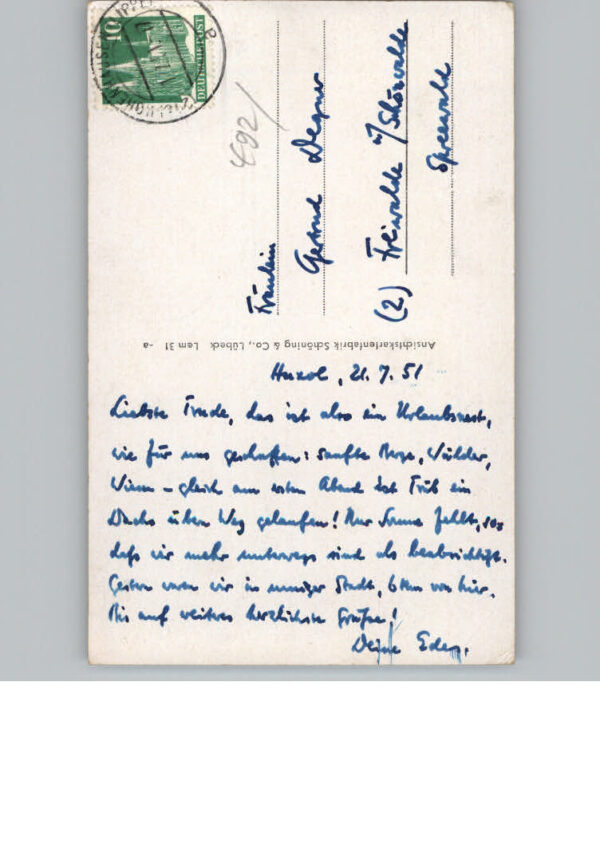 10
DEUTSCHE POST
Fräulein
Gertrud Degner
(2) Freiwalde
Spreewald
Ansichtskartenfabrik Schöning & Co., Lübeck Lam 31 -a
Huxol, 21.7.51
Liebste Trude, das ist also ein Urlaubsnest,
wie für uns geschaffen: sanfte Berge, Wälder,
Wiesen – gleich am ersten Abend ist ein
Dachs übern Weg gelaufen! Nur Sonne fehlt, so
daß wir mehr unterwegs sind als beabsichtigt.
Gestern waren wir in Stadt, 6 km von hier.
Bis auf weiteres herzlichste Grüße!
Deine